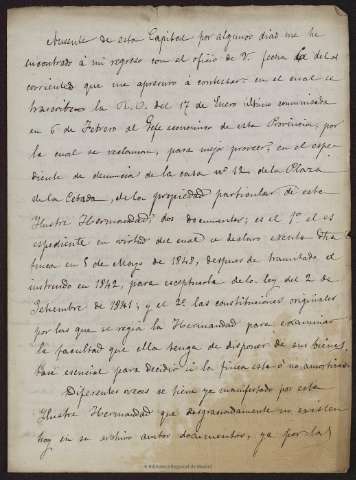 Ausente de esta Capital por algunos dias me he
encontrado á mi regreso con el oficio de V. fecha del
corriente que me apresuro á contestar, en el cual se
transcribe la R. O. del 17 de Enero último comunicada
en 6 de Febrero al Gefe economico de esta Provincia, por
la cual se reclaman, para mejor proveer, en el espe-
diente de denuncia de la casa nº 12 de la Plaza
de la Cebada, de la propiedad particular de esta
Ilustre Hermandad, dos documentos; es el 1º el es
pediente en virtud del cual se declaró exenta dha
finca en 5 de Mayo de 1848, despues de tramitado el
instruido en 1842, para esceptuarla de la ley del 2 de
Setiembre de 1841; y el 2º las constituciones originales
por las que se regia la Hermandad para examinar
la facultad que ella tenga de disponer de sus bienes,
base esencial para decidir si la finca está ó no amortizada
Diferentes veces se tiene ya manifestado por esta
Ilustre Hermandad que desgraciadamente no existen
hoy en su archivo ambos documentos, ya por las
© Biblioteca Regional de Madrid